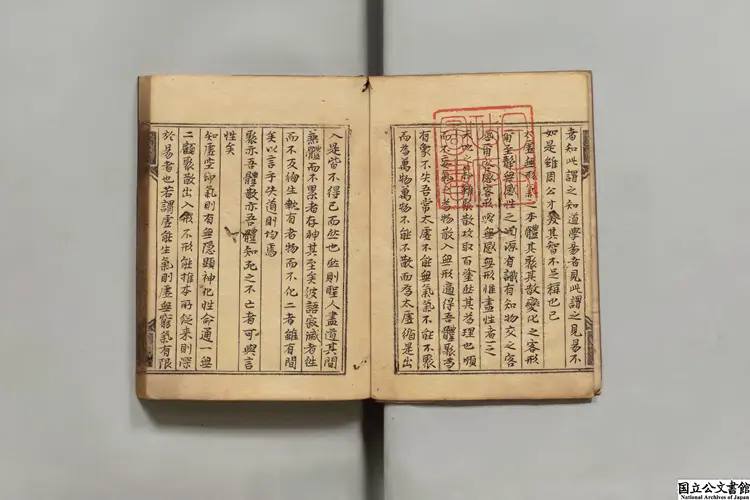 者知此謂之知道學易者見此謂之見易不
如是雖周公才美其智不足稱也已
太虛無形氣之本體其聚其散變化之客形
爾至靜無感性之淵源有識有知物交之客
感爾客感客形與無感無形惟盡性者一之
天地之氣雖聚散攻取百塗然其為理也順
而不妄氣之為物散入無形適得吾體聚為
有象不失吾常太虛不能無氣氣不能不聚
而為萬物萬物不能不散而為太虛循是出
入是皆不得已而然也然則聖人盡道其間
兼體而不累者存神其至矣彼語寂滅者往
而不反徇生執有者物而不化二者雖有間
矣以言乎失道則均焉
聚亦吾體散亦吾體知死之不亡者可與言
性矣
知虛空即氣則有無隱顯神化性命通一無
二顧聚散出入形不形能推本所從來則深
於易者也若謂虛能生氣則虛無窮氣有限
国立公文書館
National Archives of Japan